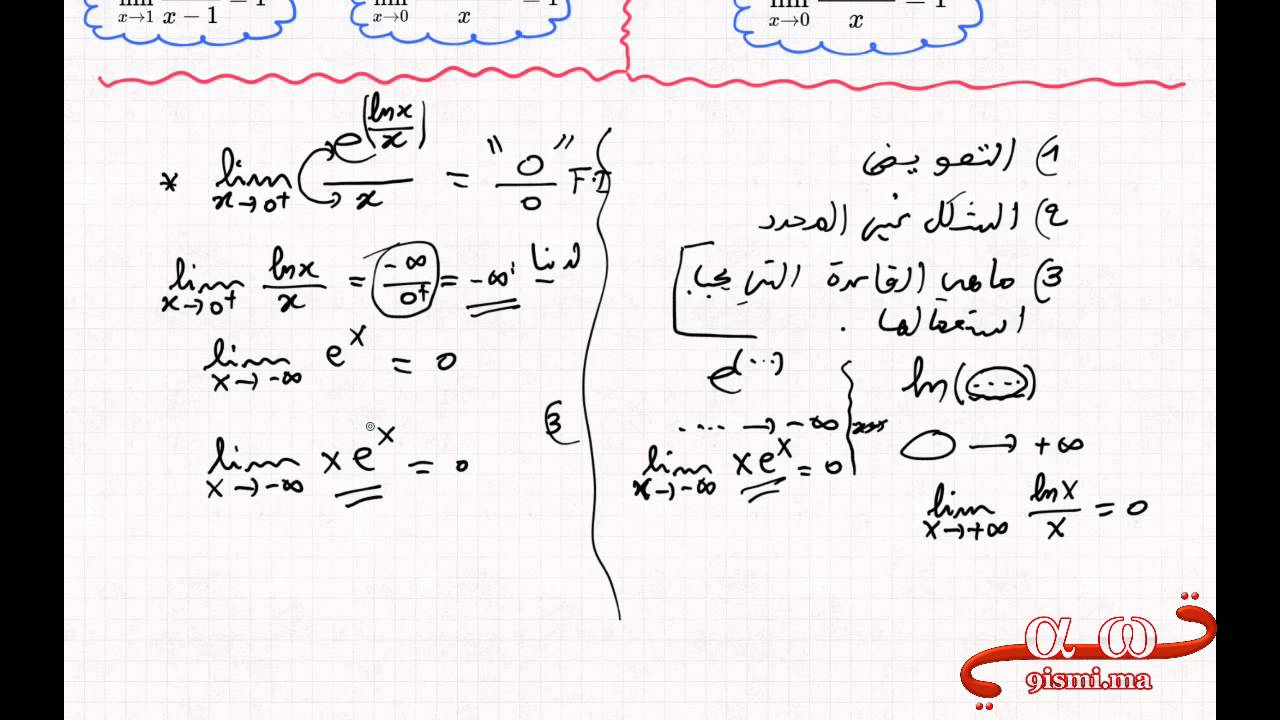 lim x→1 x − 1 − 1
lim x→0 x − 1
lim x→0 x − 1
* lim x→0⁺ e^(lnx/x) / x = " 0/0 " F.I
لدنيا lim x→0⁺ lnx/x = −∞/0⁺ = −∞
lim x→−∞ e^X = 0
3)
lim x→−∞ x e^x = 0
1) التعويض
2) الشكل غير المحدد
3) ماهي القاعدة التي يجب
استعمالها .
e^(...)
.... → −∞
lim x→−∞ x e^x = 0
ln(....)
→ +∞
lim x→+∞ lnx/x = 0
α ω
9ismi.ma